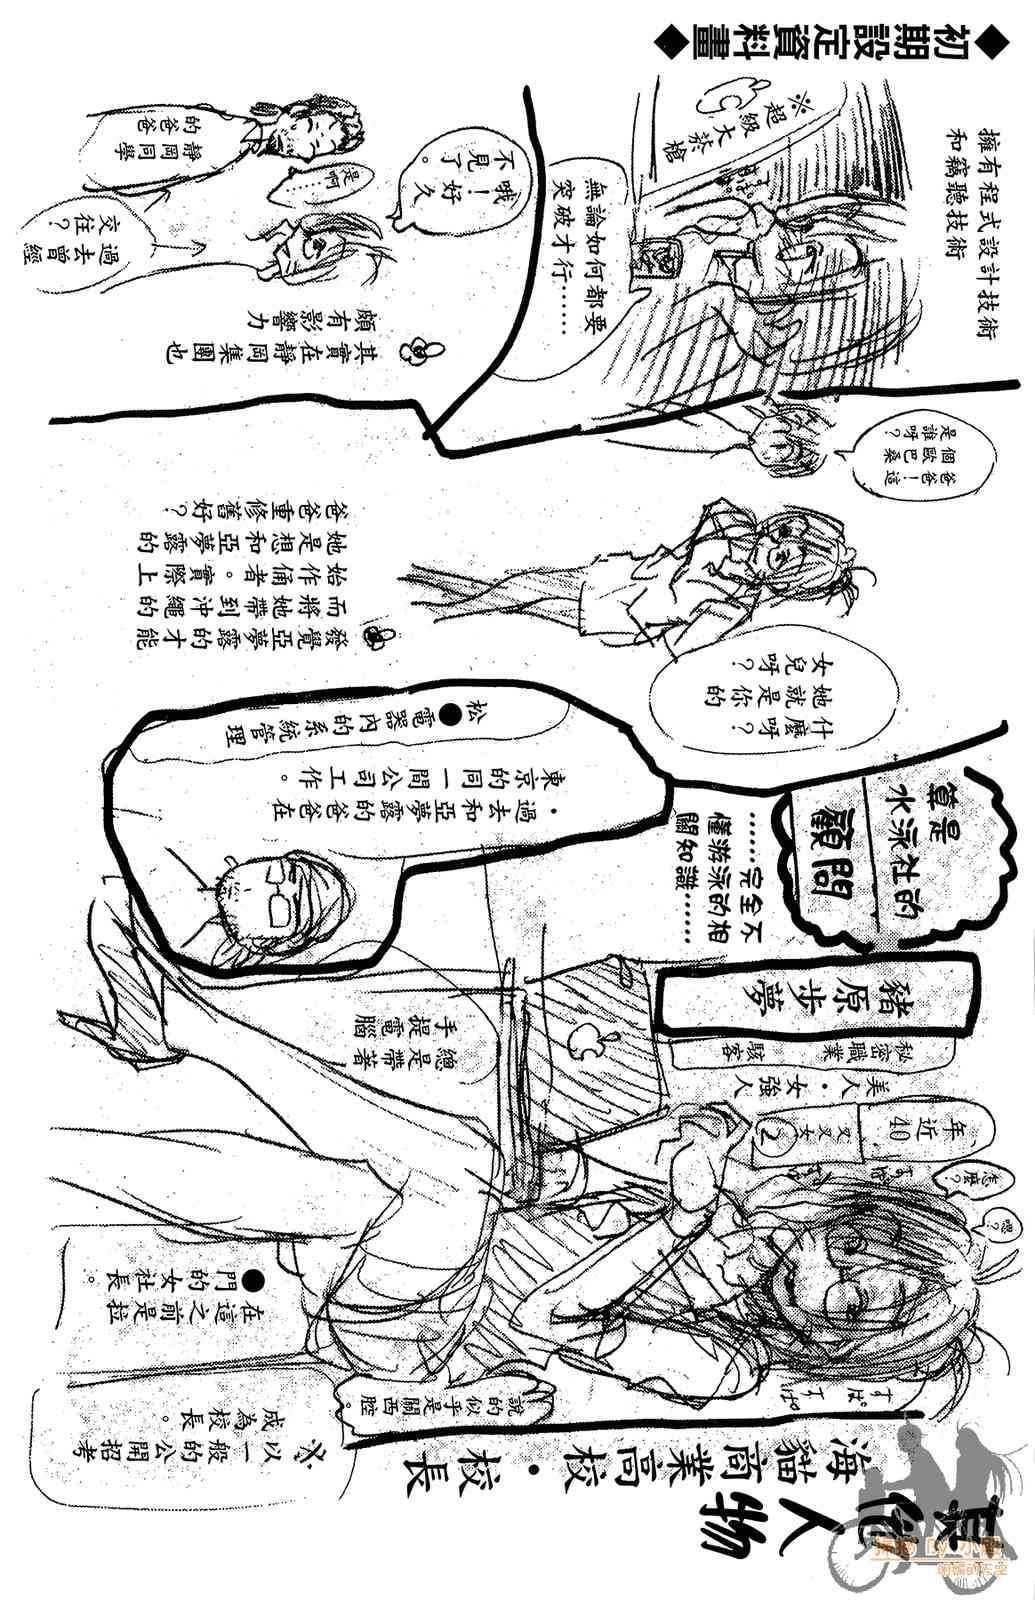 ◆初期設定資料畫◆
其他人物
海貓商業高校・校長
※以一般的公開招考
成為校長。
說的似乎是關西腔
すぱ
すぱ
嗯?
怎麼?
年近
40
又又女2
美人・女強人
秘密職業 駭客
豬原步夢
在這之前是拉
●門的女社長。
總是帶著
手提電腦
算是
水泳社的
顧問
……完全不
懂游泳的相
關知識……
・過去和亞夢露的爸爸在
東京的同一間公司工作。
松●電器內的系統管理
什麼呀?
她就是你的
女兒呀?
爸爸!這
個歐巴桑
是誰呀?
發覺亞夢露的才能
而將她帶到沖繩的
始作俑者。實際上
她是想和亞夢露的
爸爸重修舊好?
擁有程式設計技術
和竊聽技術
※超級大菸槍
無論如何都要
突破才行……
哦!好久
不見了。
是啊……
靜岡同學
的爸爸
過去曾經
交往?
其實在靜岡集團也
頗有影響力
掃圖 By 小鴨
萌媚的天空